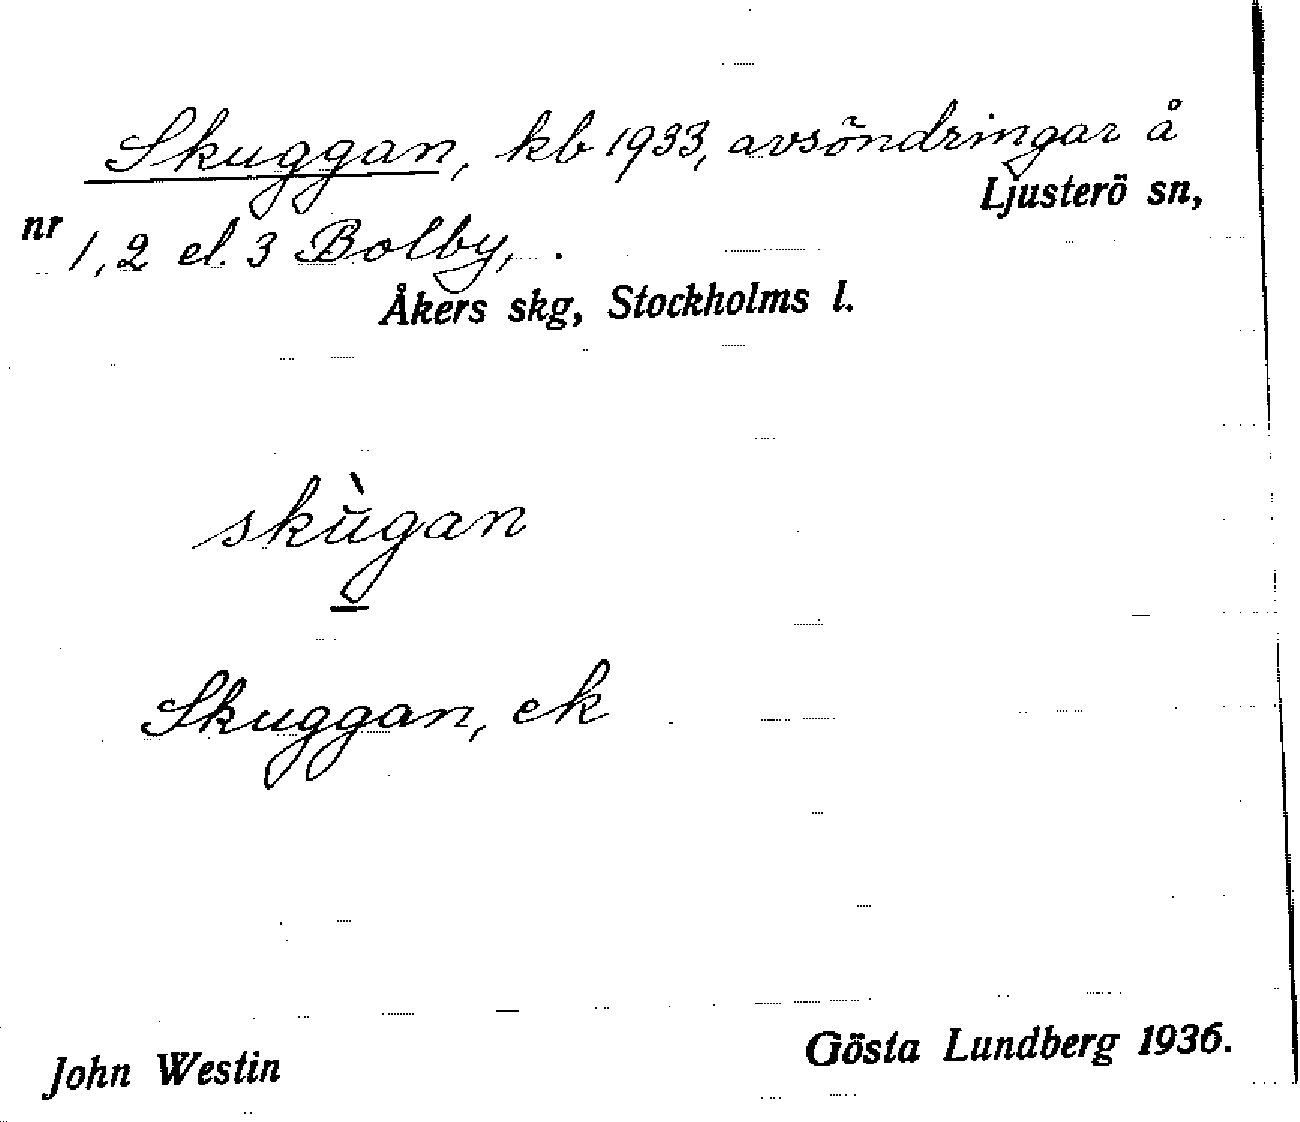 Skuggan, kb 1933, avsöndringar å
Ljusterö sn,
nr 1, 2 el. 3 Bolby, .
Åkers skg, Stockholms l.
skùgan
Skuggan, ek
John Westin
Gösta Lundberg 1936.